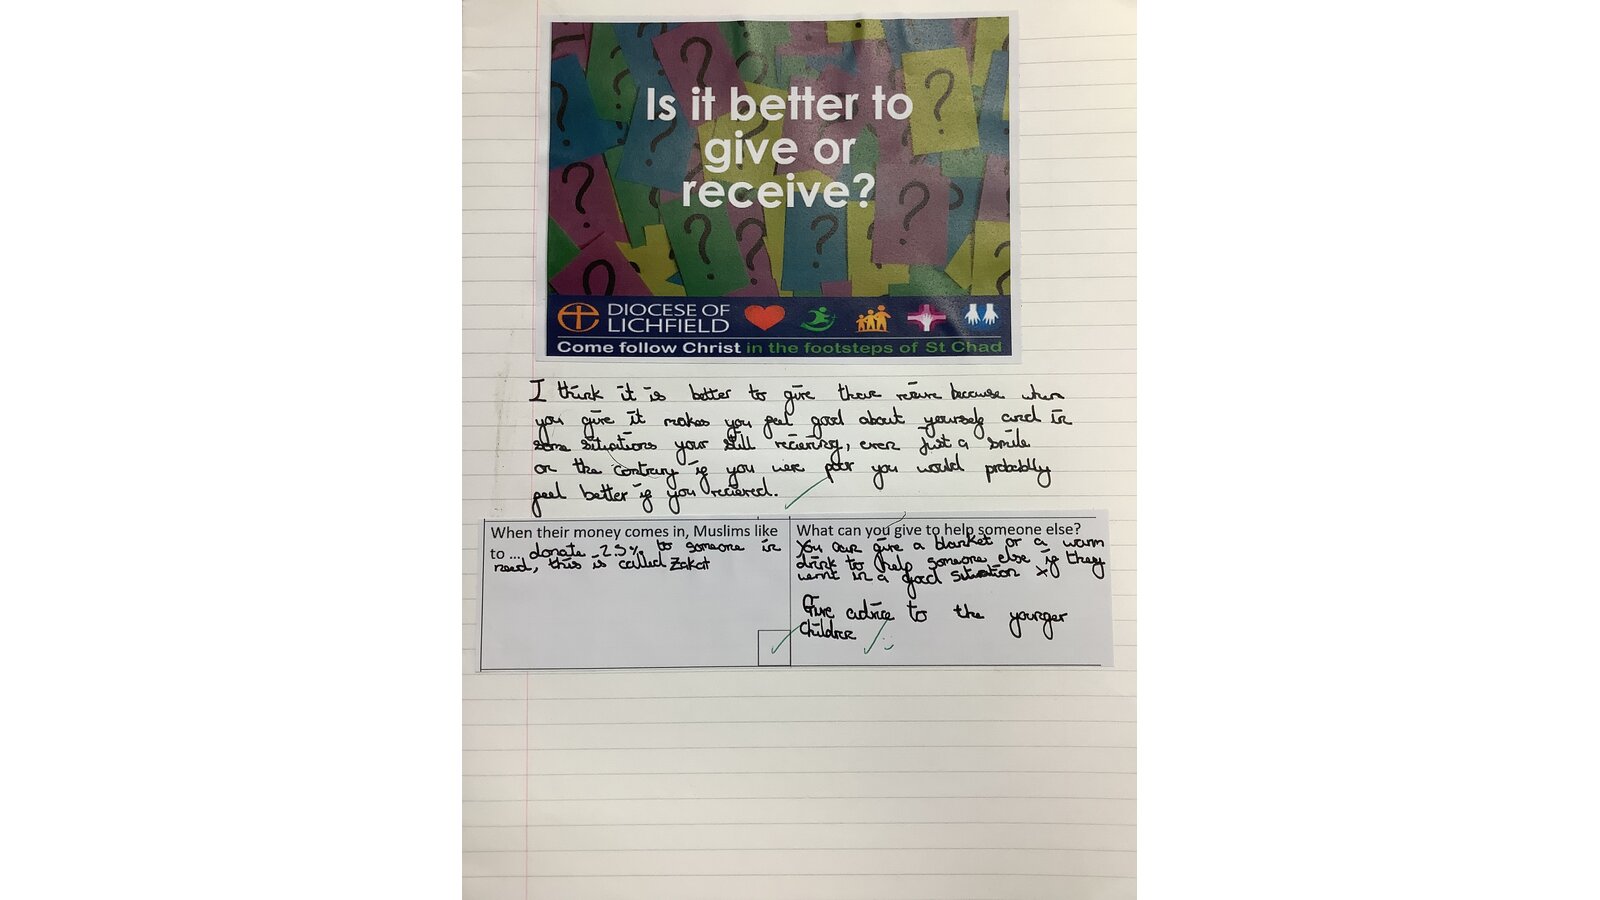 Is it better to
give or
receive?
DIOCESE OF
LICHFIELD
Come follow Christ in the footsteps of St Chad
I think it is better to give then recive because when
you give it makes you feel good about yourself and in
some situations your still reciering, even just a smile
on the contrary if you were poor you would probablly
feel better if you reciered.
When their money comes in, Muslims like
to ... donate 2.5% to someone in
need, this is called Zakat
What can you give to help someone else?
You can give a blanket or a warm
drink to help someone else if they
wernt in a good situation
Give advice to the younger
Children